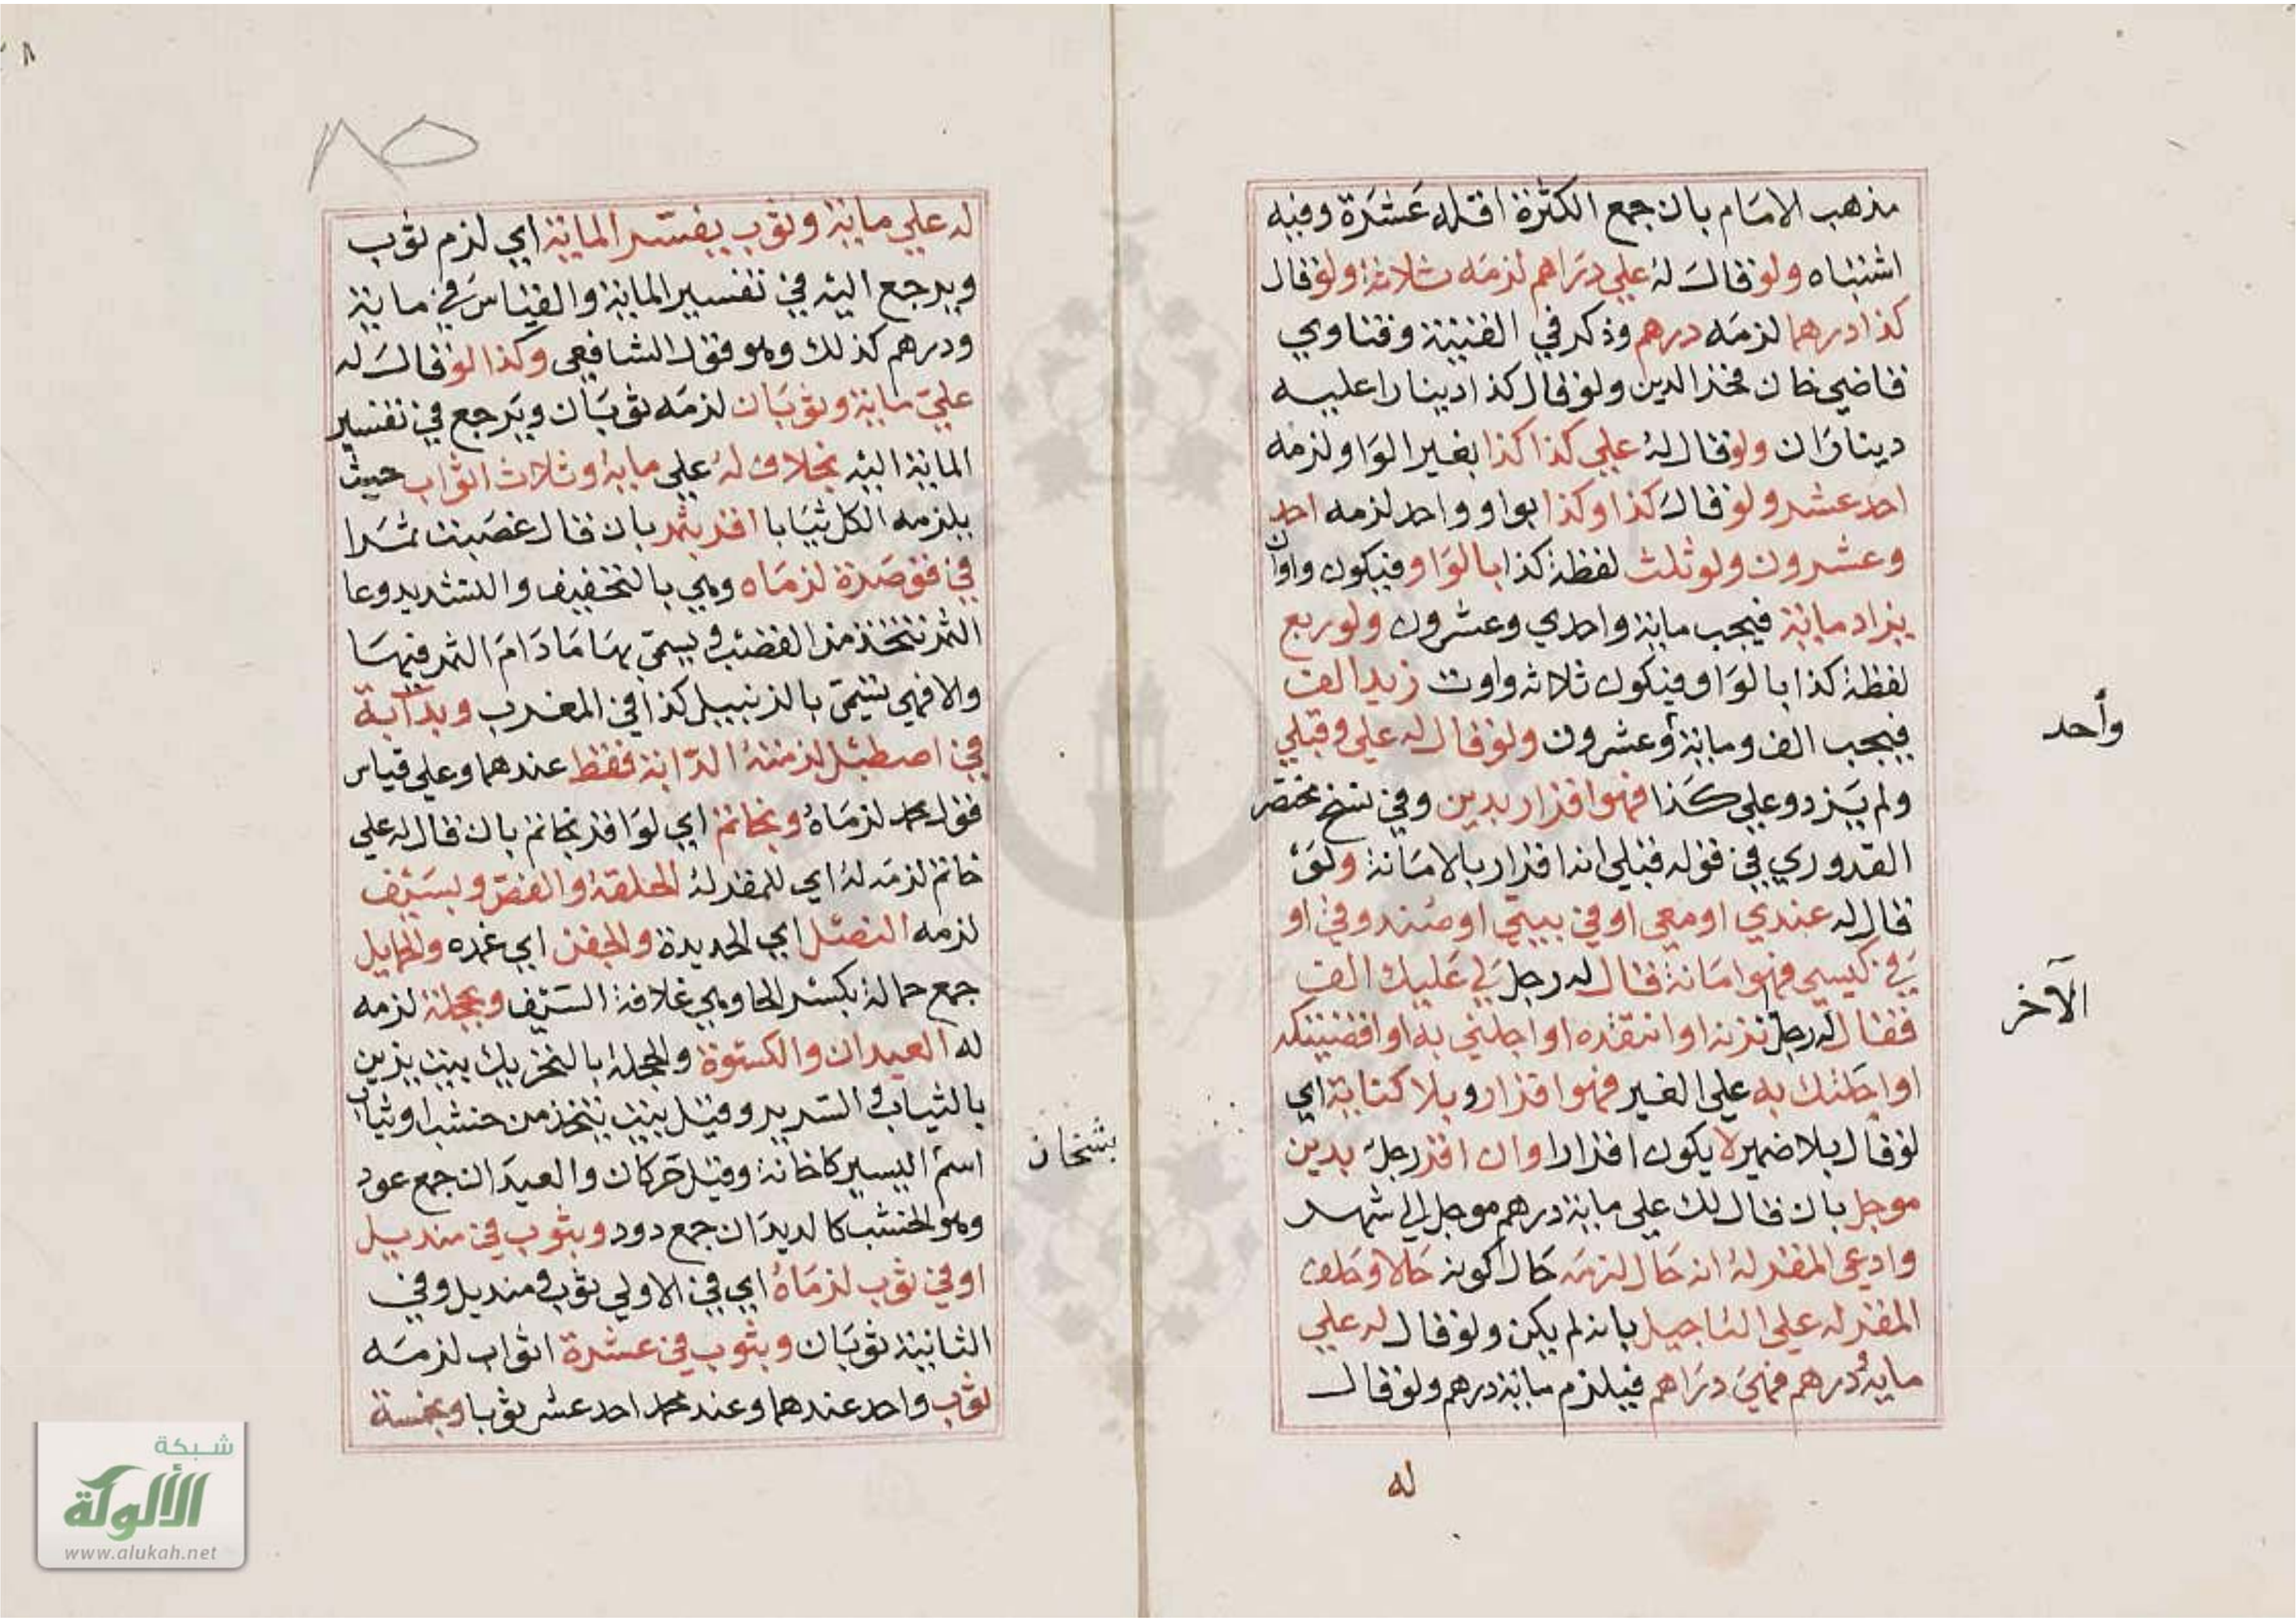 مذهب الامام بان جمع الكثرة اقله عشرة وفيه
اشتباه ولو قال له علي دراهم لزمه ثلاثة ولو قال
كذا درهما لزمه درهم وذكر في القنية وفتاوي
قاضي خان فخر الدين ولو قال كذا دينارا عليه
ديناران ولو قال له علي كذا كذا بغير الواو لزمه
احد عشر ولو قال كذا وكذا بواو واحد لزمه احد
وعشرون ولو ثلث لفظة كذا بالواو فيكون واوان
يزاد ماية فيجب ماية واحدي وعشرون ولو ربع
لفظة كذا بالواو فيكون ثلاثه واوت زيد الف
فيجب الف وماية وعشرون ولو قال له علي وقبلي
واحد
ولم يزد وعلي كذا فهو اقرار بدين وفي نسخ مختصر
القدوري في قوله قبلي انه اقرار بالامانة ولو
قال له عندي او معي او في بيتي او صندوقي او
في كيسي فهو امانة قال له رجل لي عليك الف
الآخر
فقال له رجل تزنه او انتقده او اجلني به او اقضيتكه
او احلتك به علي الغير فهو اقرار وبلا كناية اي
لو قال بلا ضمير لا يكون اقرارا وان اقر رجل بدين
موجل بان قال لك علي ماية درهم موجل الي شهر
وادعي المقر له انه حال لزمه حال كونه حالا وحلف
المقر له علي التاجيل بانه لم يكن ولو قال له علي
ماية درهم فهي دراهم فيلزم ماية درهم ولو قال
له
٨٥
له علي ماية وثوب يفسر الماية اي لزم ثوب
ويرجع اليه في تفسير الماية والقياس في ماية
ودرهم كذلك وهو قول الشافعي وكذا لو قال له
علي ماية وثوبان لزمه ثوبان ويرجع في تفسير
الماية اليه بخلاف له علي ماية وثلاث اثواب حيث
يلزمه الكل ثيابا اقر بتمر بان قال غصبت تمرا
في قوصرة لزماه وهي بالتخفيف والتشديد وعا
التمر تتخذ من القضب ويسمي بها ما دام التمر فيها
والا فهي تسمي بالزنبيل كذا في المغرب وبدابة
في اصطبل لزمته الدابة فقط عندهما وعلي قياس
قول محمد لزماه وبخاتم اي لو اقر بخاتم بان قال له علي
خاتم لزمه له اي للمقر له الحلقة والفص وبسيف
لزمه النصل اي الحديدة والجفن اي غمده والحمايل
جمع حمالة بكسر الحا وهي علاقة السيف وبحجلة لزمه
له العيدان والكسوة والحجلة بالتحريك بيت يزين
بالثياب والسرير وقيل بيت يتخذ من خشب او ثياب
بشخان
اسم اليسير كاخانة وقيل خركان والعيدان جمع عود
وهو الخشب كالديدان جمع دود وبثوب في منديل
او في ثوب لزماه اي في الاولي ثوب ومنديل وفي
الثانية ثوبان وبثوب في عشرة اثواب لزمه
ثوب واحد عندهما وعند محمد احد عشر ثوبا وبخمسة
شبكة
الألوكة
www.alukah.net